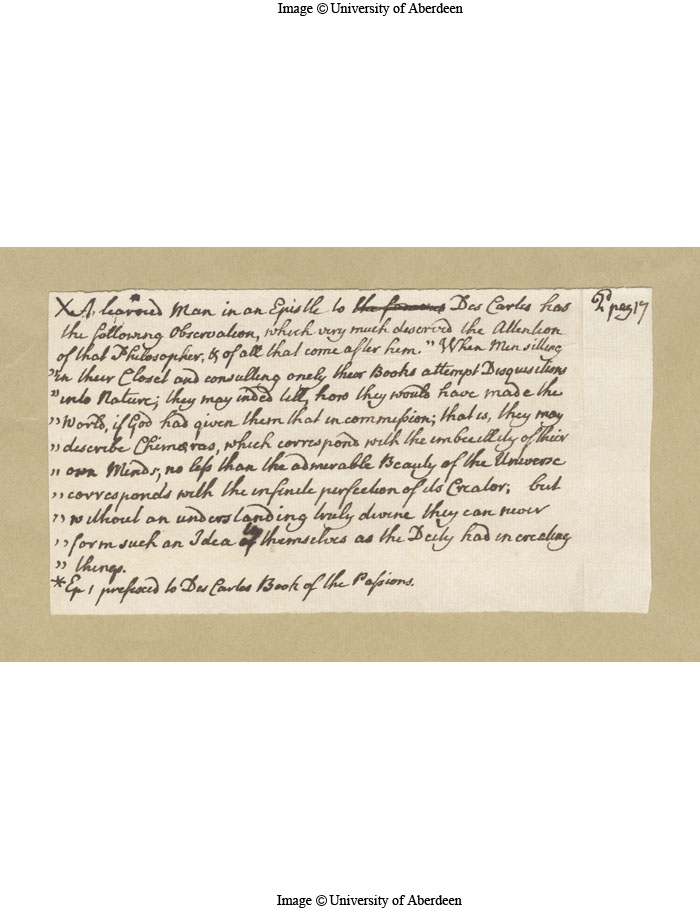 Image © University of Aberdeen
X A learned Man in an Epistle to the famous Des Cartes has
the following Observation, which very much deserved the Attention
of that Philosopher, & of all that come after him. " When Men sitting
" in their Closet and consulting onely their Books attempt Disquisitions
" into Nature; they may inded tell, how they would have made the
" World, if God had given them that in commission; that is, they may
" describe Chimeras, which correspond with the imbecillity of their
" own Minds, no less than the admirable Beauty of the Universe
" corresponds with the infinite perfection of its Creator; but
" without an understanding truly divine they can never
" form such an Idea to themselves as the Deity had in creating
" things.
* Ep 1 prefixed to Des Cartes Book of the Passions.
pag 17
Image © University of Aberdeen